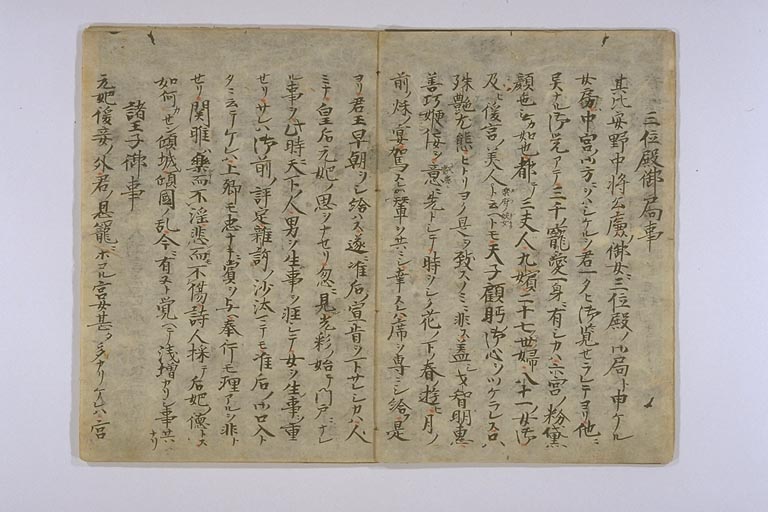 三位殿御局事
其比安野中将公廉御女ニ三位殿ノ御局ト申ケル
女房中宮御方ニサフラハレケルヲ君一タヒ御覧セラレテヨリ他ニ
異ナル御覚アリ三千ノ寵愛一身ニ有シカハ六宮ノ粉黛
顔色无カ如也都テ三夫人九嬪二十七世婦八十一女御
及ヒ後宮ノ美人ト云トモ天子顧眄ノ御心ヲツケラレス只
殊艶尤態ヒトリヨク是ヲ致スノミニ非ス蓋シ才智明恵
善巧便佞ニシテ意ニ先テ
前ノ秋ノ宴駕スレハ輦ヲ共ニシ幸スレハ席ヲ専ニシ給フ是
ヨリ君王早朝シ給ハス遂ニ准后ノ宣旨ヲ下サレシカハ人
ミナ皇后元妃ノ思ヲナセリ忽ニ見光彩ノ始テ門戸ニナル
ル事ヲ此時天下ノ人男ヲ生事ヲ軽シテ女ヲ生事ヲ重
セリサレハ御前ノ評定雑訴ノ沙汰マテモ准后ノ御口入ト
タニ云テケレハ上卿モ忠ナキニ賞ヲ与ヘ奉行モ理アルヲ非ト
セリ関雎ハ楽而不淫悲而不傷詩人採テ后妃ノ徳トス
如何カセン傾城傾国ノ乱今ニ有ヌト覚ヘテ浅増カリシ事共ナリ
諸王子御事
元妃後妾ノ外君ノ恩寵ニホコル宮女甚タ多カリケレハ宮